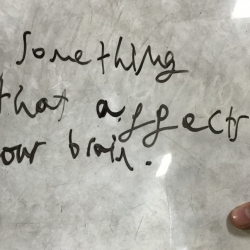 Something
that affect
our brain.